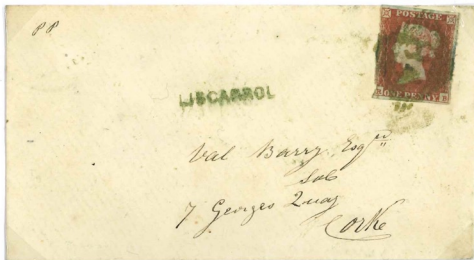 PP
POSTAGE
ONE PENNY
LISCARROL
Val Barry Esqre
Sols
7 Georges Quay
Corke